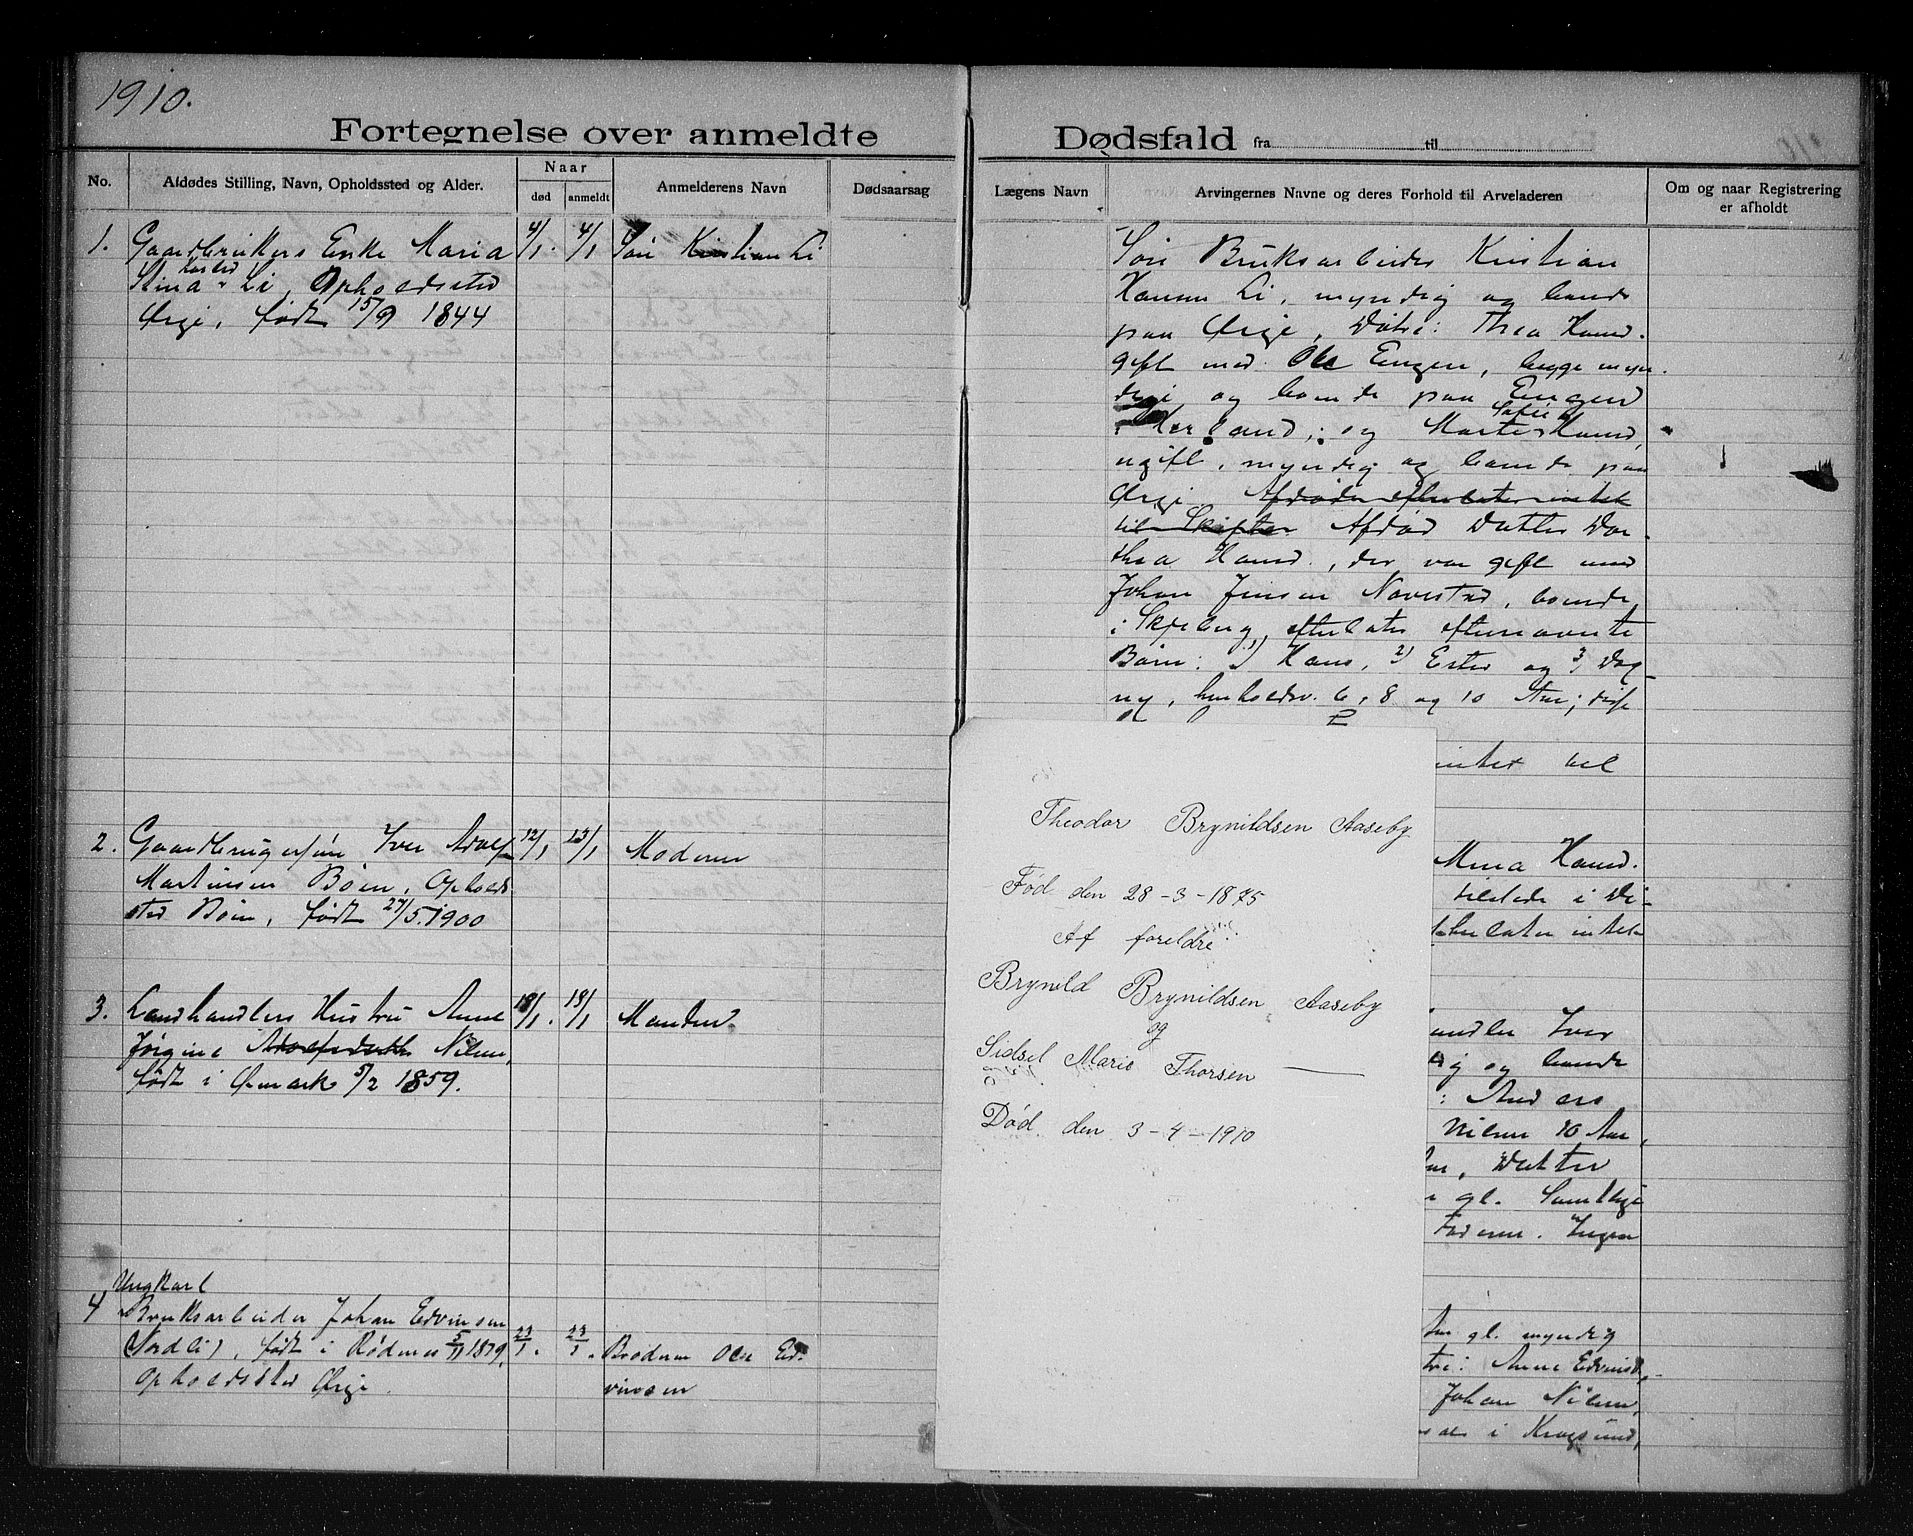 1910.
Fortegnelse over anmeldte Dødsfald fra til
No.
Afdødes Stilling, Navn, Opholdssted og Alder.
Naar
død
anmeldt
Anmelderens Navn
Dødsaarsag
Lægens Navn
Arvingernes Navne og deres Forhold til Arveladeren
Om og naar Registrering
er afholdt
1. Gaardbrukers Enke Maria 4/1. 4/1 Søn Kristian Li
Stina Li, Opholdssted
Ørje, født 15/9 1844
Søn Bruksarbeider Kristian
Hansen Li, myndig og boende
paa Ørje, Døtre: Thea Hansd.
gift med Ole Engen, begge myn
dige og boende paa Engen
og Marte Sofie Hansd,
ugift, myndig og boende paa
Ørje. Afdøde efterlater intet
til Skifte. Afdød Datter Dor
thea Hansd., der var gift med
Johan Jensen Navestad, boende
i Skjeberg, efterlater efternævnte
Børn: 1) Hans, 2) Ester og 3, Dag
ny, henholdsv. 6, 8 og 10 Aar; disse
intet til
2. Gaardbrugersøn Iver Adolf 12/1 13/1 Moderen
Martinsen Bøen, Opholds
sted Bøen, født 27/5.1900
Mina Hansd.
tilstede i Di-
efterlater intet
3. Landhandlers Hustru Anne 18/1. 18/1 Manden.
Jørgine Nilsen,
født i Ømark 5/2 1859.
handler Iver
og boende
: Anders
Nilsen 10 Aar,
Datter
gl. Samtlige
Faderen. Ingen
Ungkarl
4 Bruksarbeider Johan Edvinsen
Nordli), født i Rødenes 5/11 1879, 23/1. 23/1. Broderen Ole Ed-
Opholdssted Ørje. vinsen
gl. myndig
: Anne Edvinsd.,
Johan Nilsen,
i Kragsund,
Theodor Brynildsen Aaseby
Fød den 28-3-1875
Af foreldre
Brynild Brynildsen Aaseby
og
Sidsel Marie Thorsen —
Død den 3-4-1910